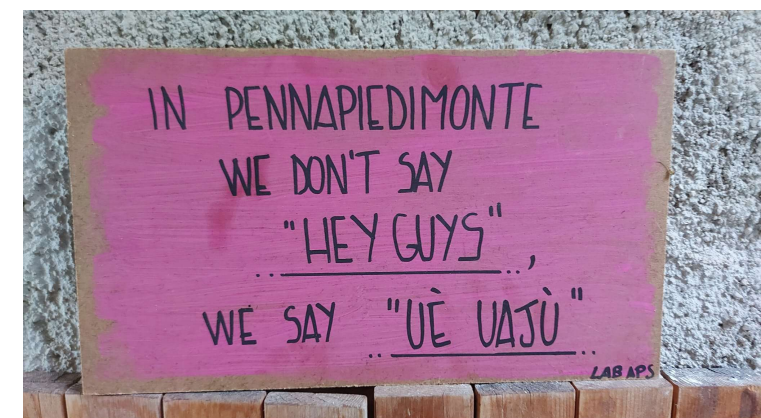 IN PENNAPIEDIMONTE
WE DON'T SAY
"HEY GUYS",
WE SAY "UÈ UAJÙ"
LAB APS